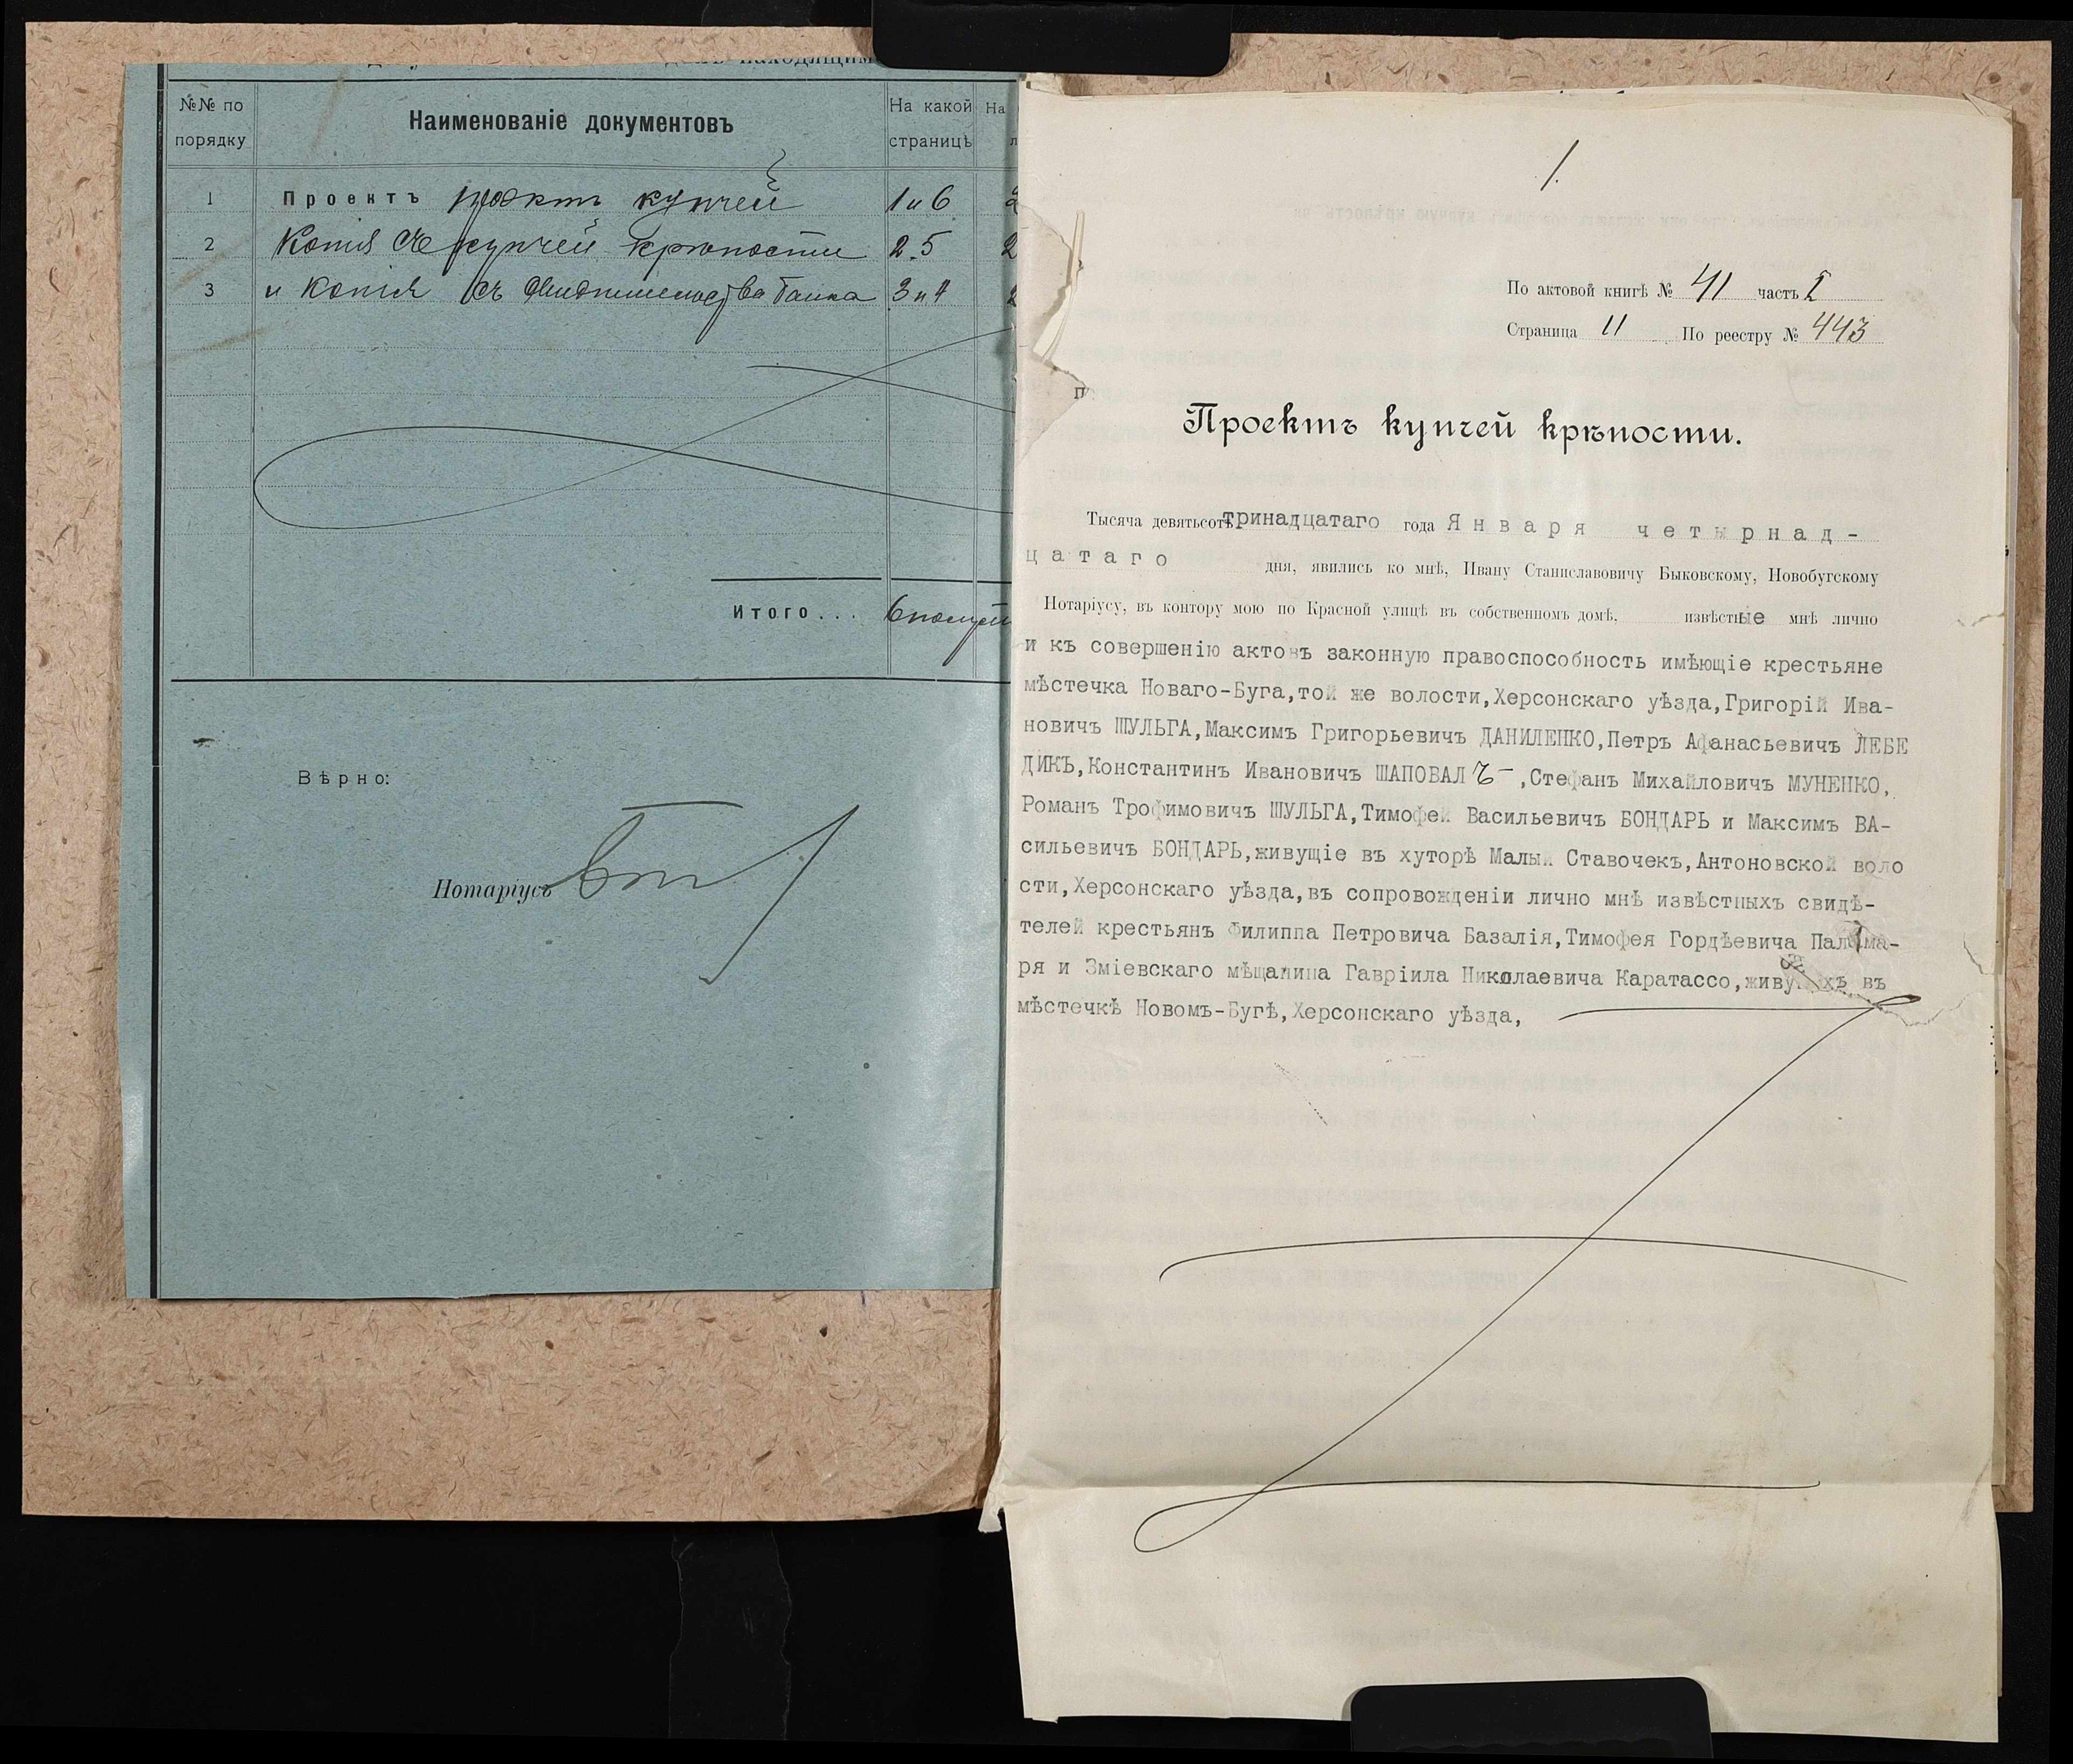 №№ по порядку
Наименованіе документовъ
На какой страницѣ
На
1 Проектъ акта купчей 1 и 6 2
2 Копія съ купчей крѣпости 2.5 2
3 и Копія съ свидѣтельства банка 3 и 4 2
Итого...
Вѣрно:
Нотаріусъ
1.
По актовой книгѣ № 41 часть I
Страница 11 По реестру № 443
Проектъ купчей крѣпости.
Тысяча девятьсотъ тринадцатаго года Января четырнад-
цатаго дня, явились ко мнѣ, Ивану Станиславовичу Быковскому, Новобугскому
Нотаріусу, въ контору мою по Красной улицѣ въ собственномъ домѣ, извѣстные мнѣ лично
и къ совершенію актовъ законную правоспособность имѣющіе крестьяне
мѣстечка Новаго-Буга,той же волости,Херсонскаго уѣзда,Григорій Ива-
новичъ ШУЛЬГА,Максимъ Григорьевичъ ДАНИЛЕНКО,Петръ Афанасьевичъ ЛЕБЕ
ДИКЪ,Константинъ Ивановичъ ШАПОВАЛЪ-,Стефанъ Михайловичъ МУНЕНКО,
Романъ Трофимовичъ ШУЛЬГА,Тимофей Васильевичъ БОНДАРЬ и Максимъ ВА-
сильевичъ БОНДАРЬ,живущіе въ хуторѣ Малый Ставочекъ,Антоновской воло
сти,Херсонскаго уѣзда,въ сопровожденіи лично мнѣ извѣстныхъ свидѣ-
телей крестьянъ Филиппа Петровича Базалія,Тимофея Гордѣевича Палама-
ря и Зміевскаго мѣщанина Гавріила Николаевича Каратассо,живущихъ въ
мѣстечкѣ Новомъ-Бугѣ,Херсонскаго уѣзда,